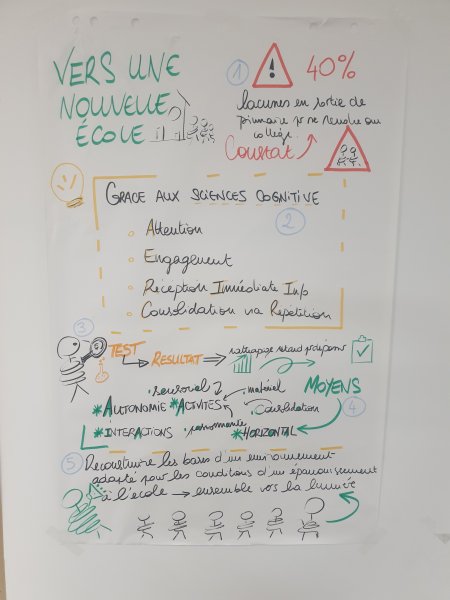 VERS UNE
NOUVELLE
ÉCOLE
1
!
40%
lacunes en sortie de
primaire pr se rendre au
collège.
Constat
GRACE AUX SCIENCES COGNITIVE
2
Attention
Engagement
Réception Immédiate Info
Consolidation via Répétition
3
TEST
RESULTAT
rattrapage retard
MOYENS
4
sensoriel
matériel
*AUTONOMIE *ACTIVITES
Consolidation
*INTERACTIONS
*HORIZONTAL
5
Reconstruire les bases d'un environnement
adapté pour les conditions d'un épanouissement
à l'école → ensemble vers la lumière